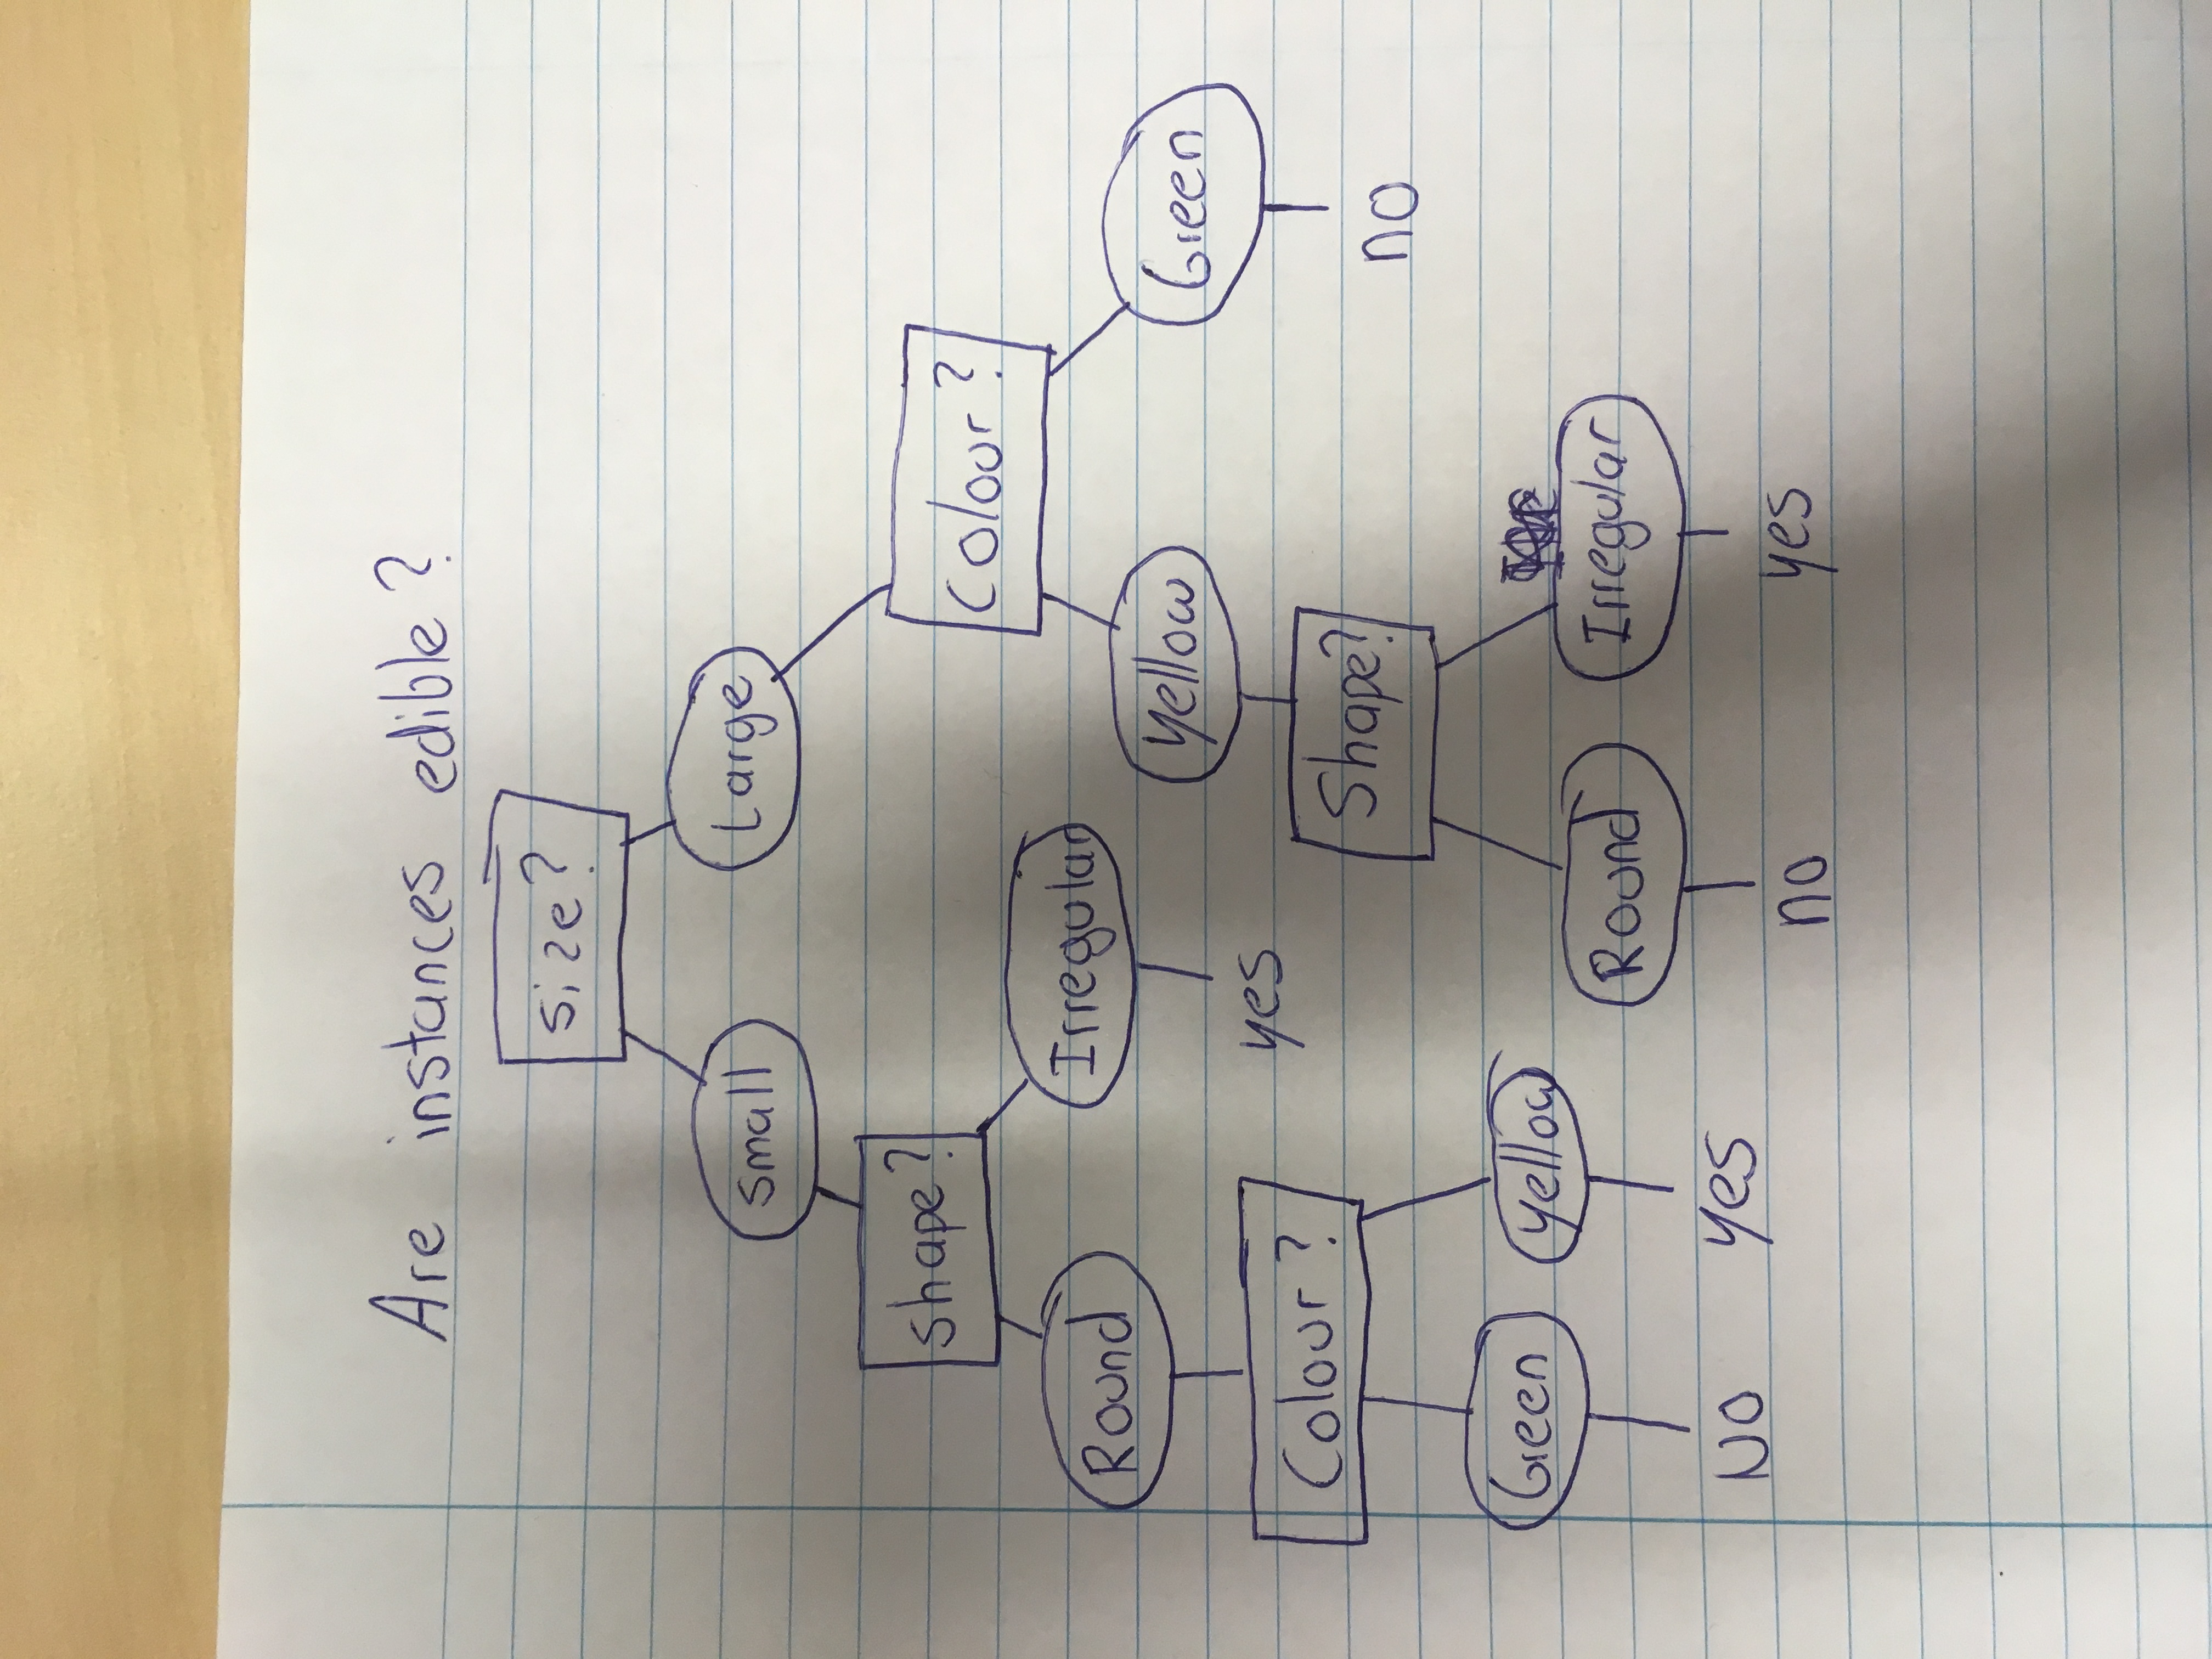 Are instances edible?
size?
small
Large
shape?
Colour?
Round
Irregular
yellow
Green
yes
Colour?
Shape?
no
Green
yellow
Round
Irregular
NO
yes
no
yes